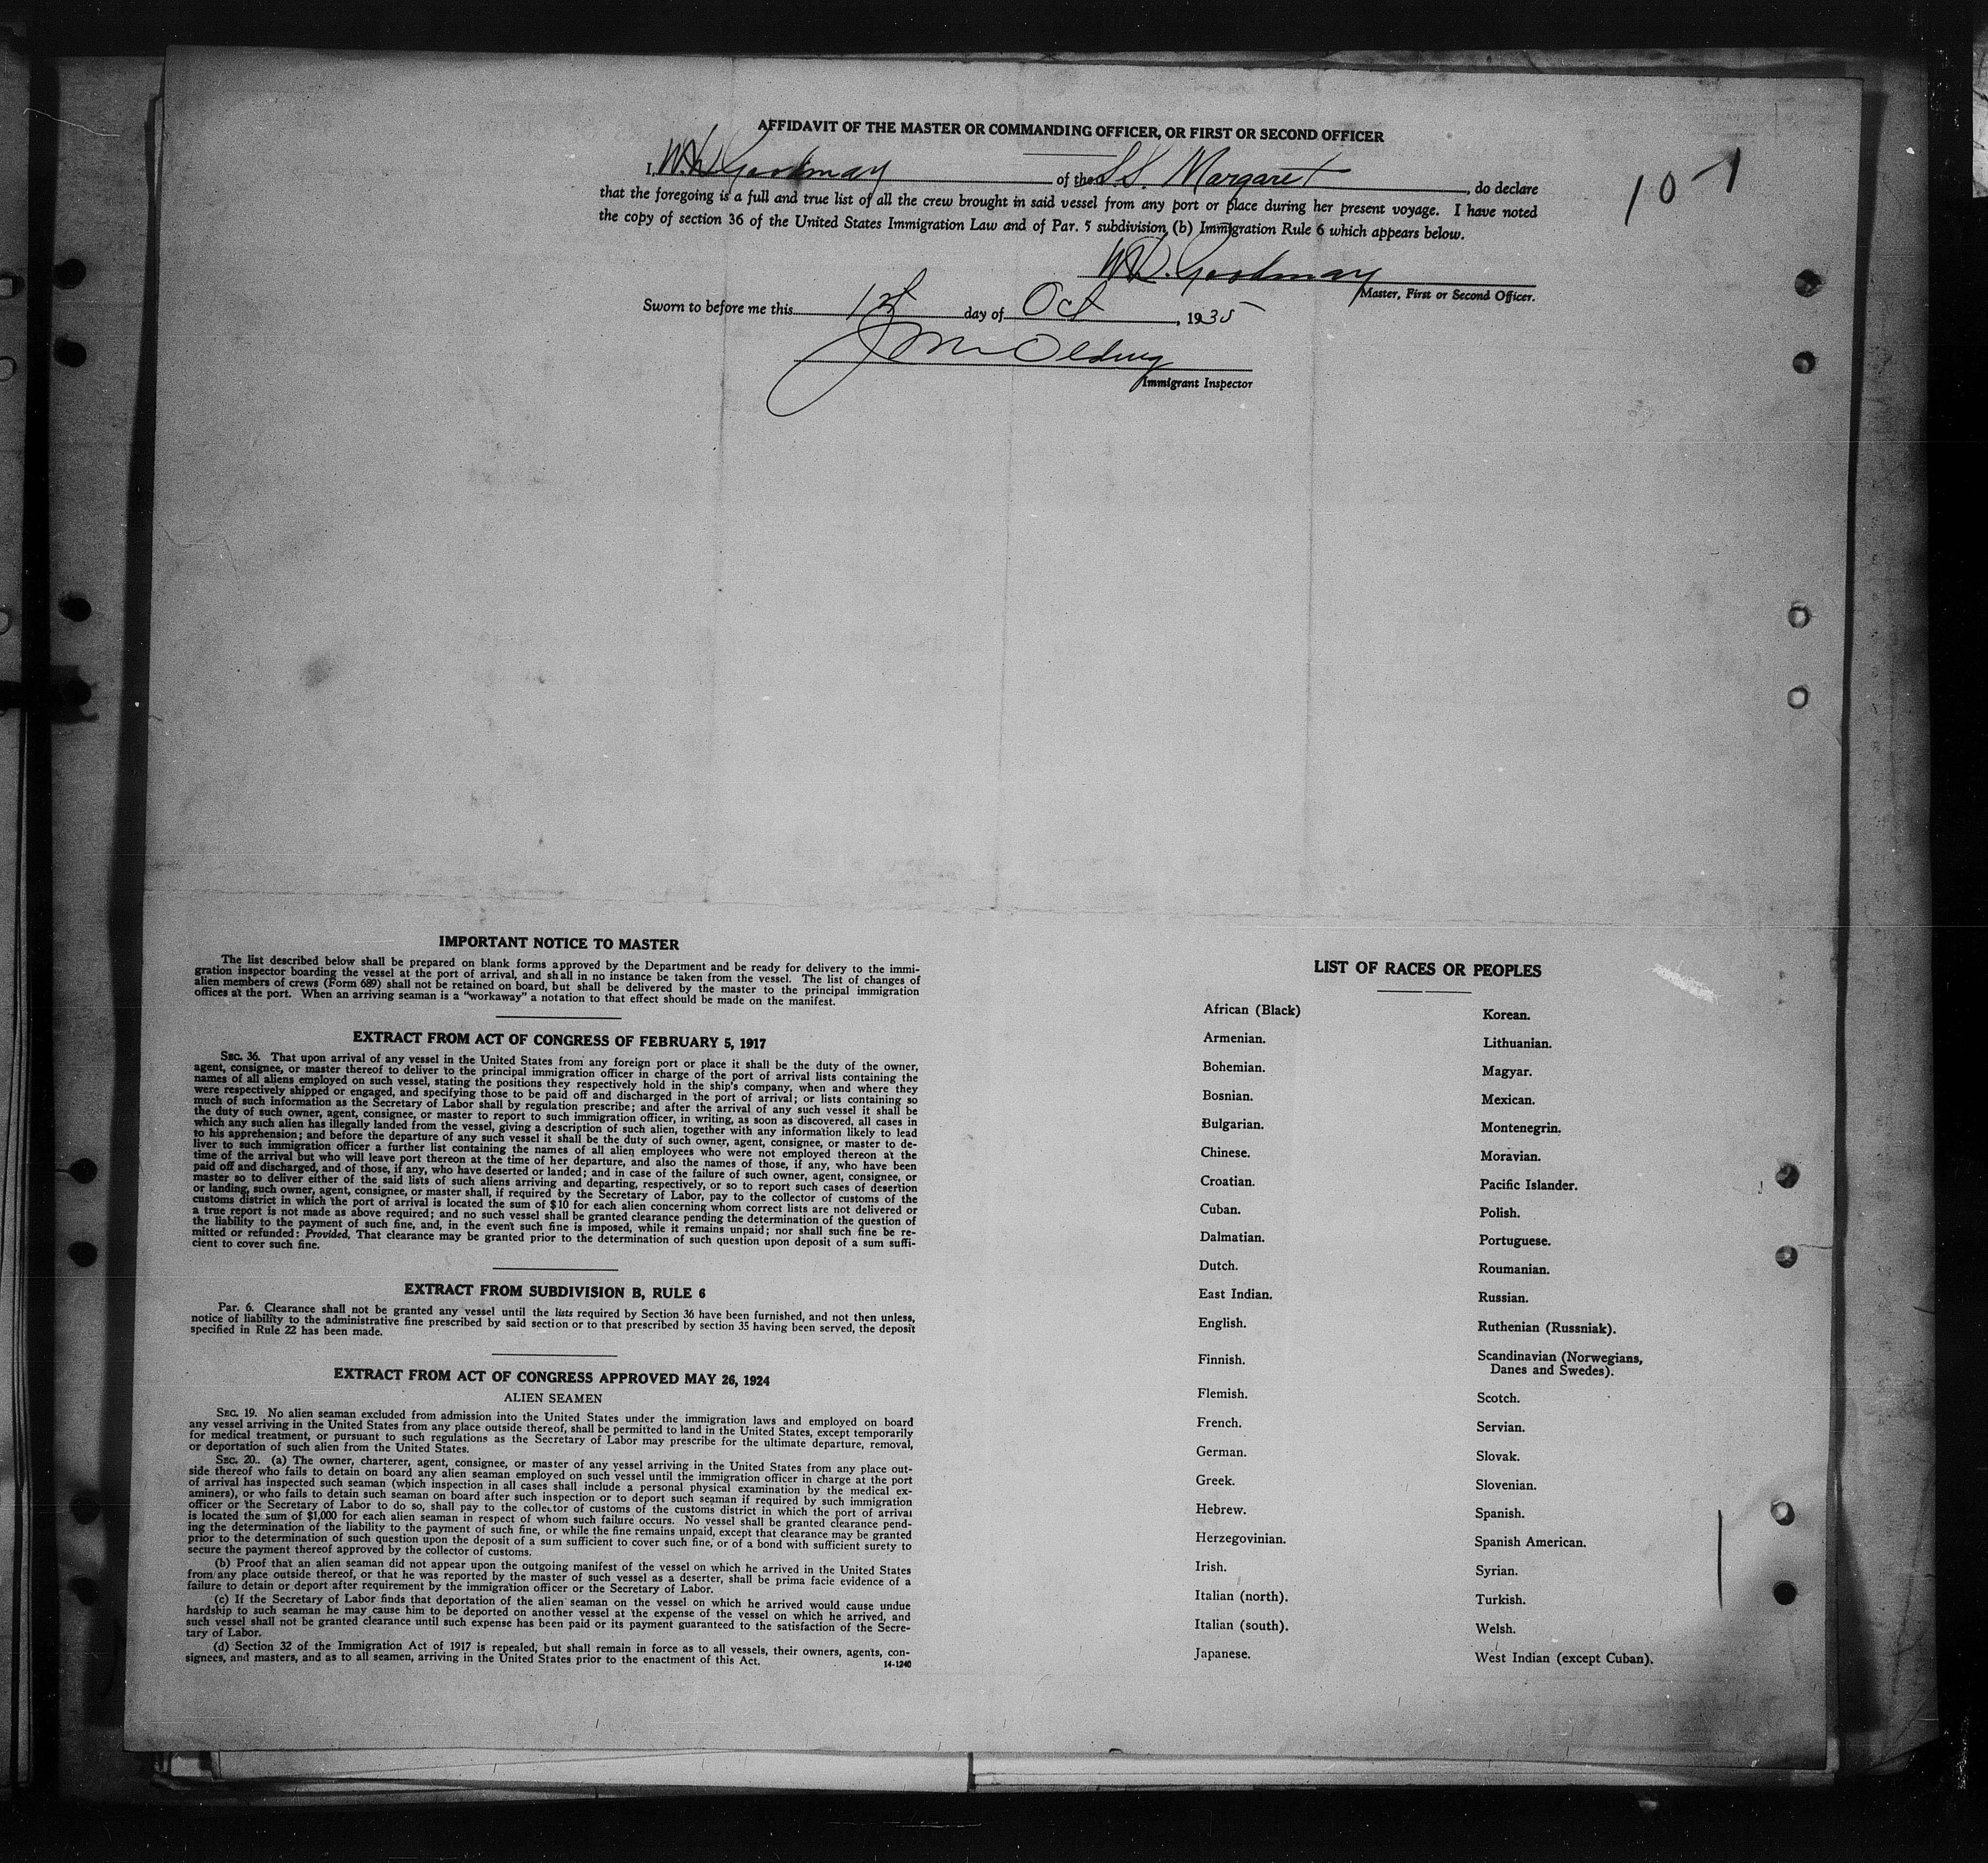 AFFIDAVIT OF THE MASTER OR COMMANDING OFFICER, OR FIRST OR SECOND OFFICER
I, of the S.S. Margaret, do declare
that the foregoing is a full and true list of all the crew brought in said vessel from any port or place during her present voyage. I have noted
the copy of section 36 of the United States Immigration Law and of Par. 5 subdivision (b) Immigration Rule 6 which appears below.
10-1
Master, First or Second Officer.
Sworn to before me this 1st day of Oct, 1935
Immigrant Inspector
IMPORTANT NOTICE TO MASTER
The list described below shall be prepared on blank forms approved by the Department and be ready for delivery to the immi-
gration inspector boarding the vessel at the port of arrival, and shall in no instance be taken from the vessel. The list of changes of
alien members of crews (Form 689) shall not be retained on board, but shall be delivered by the master to the principal immigration
offices at the port. When an arriving seaman is a "workaway" a notation to that effect should be made on the manifest.
EXTRACT FROM ACT OF CONGRESS OF FEBRUARY 5, 1917
SEC. 36. That upon arrival of any vessel in the United States from any foreign port or place it shall be the duty of the owner,
agent, consignee, or master thereof to deliver to the principal immigration officer in charge of the port of arrival lists containing the
names of all aliens employed on such vessel, stating the positions they respectively hold in the ship's company, when and where they
were respectively shipped or engaged, and specifying those to be paid off and discharged in the port of arrival; or lists containing so
much of such information as the Secretary of Labor shall by regulation prescribe; and after the arrival of any such vessel it shall be
the duty of such owner, agent, consignee, or master to report to such immigration officer, in writing, as soon as discovered, all cases in
which any such alien has illegally landed from the vessel, giving a description of such alien, together with any information likely to lead
to his apprehension; and before the departure of any such vessel it shall be the duty of such owner, agent, consignee, or master to de-
liver to such immigration officer a further list containing the names of all alien employees who were not employed thereon at the
time of the arrival but who will leave port thereon at the time of her departure, and also the names of those, if any, who have been
paid off and discharged, and of those, if any, who have deserted or landed; and in case of the failure of such owner, agent, consignee, or
master so to deliver either of the said lists of such aliens arriving and departing, respectively, or so to report such cases of desertion
or landing, such owner, agent, consignee, or master shall, if required by the Secretary of Labor, pay to the collector of customs of the
customs district in which the port of arrival is located the sum of $10 for each alien concerning whom correct lists are not delivered or
a true report is not made as above required; and no such vessel shall be granted clearance pending the determination of the question of
the liability to the payment of such fine, and, in the event such fine is imposed, while it remains unpaid; nor shall such fine be re-
mitted or refunded: Provided, That clearance may be granted prior to the determination of such question upon deposit of a sum suffi-
cient to cover such fine.
EXTRACT FROM SUBDIVISION B, RULE 6
Par. 6. Clearance shall not be granted any vessel until the lists required by Section 36 have been furnished, and not then unless,
notice of liability to the administrative fine prescribed by said section or to that prescribed by section 35 having been served, the deposit
specified in Rule 22 has been made.
EXTRACT FROM ACT OF CONGRESS APPROVED MAY 26, 1924
ALIEN SEAMEN
SEC. 19. No alien seaman excluded from admission into the United States under the immigration laws and employed on board
any vessel arriving in the United States from any place outside thereof, shall be permitted to land in the United States, except temporarily
for medical treatment, or pursuant to such regulations as the Secretary of Labor may prescribe for the ultimate departure, removal,
or deportation of such alien from the United States.
SEC. 20.. (a) The owner, charterer, agent, consignee, or master of any vessel arriving in the United States from any place out-
side thereof who fails to detain on board any alien seaman employed on such vessel until the immigration officer in charge at the port
of arrival has inspected such seaman (which inspection in all cases shall include a personal physical examination by the medical ex-
aminers), or who fails to detain such seaman on board after such inspection or to deport such seaman if required by such immigration
officer or the Secretary of Labor to do so, shall pay to the collector of customs of the customs district in which the port of arrival
is located the sum of $1,000 for each alien seaman in respect of whom such failure occurs. No vessel shall be granted clearance pend-
ing the determination of the liability to the payment of such fine, or while the fine remains unpaid, except that clearance may be granted
prior to the determination of such question upon the deposit of a sum sufficient to cover such fine, or of a bond with sufficient surety to
secure the payment thereof approved by the collector of customs.
(b) Proof that an alien seaman did not appear upon the outgoing manifest of the vessel on which he arrived in the United States
from any place outside thereof, or that he was reported by the master of such vessel as a deserter, shall be prima facie evidence of a
failure to detain or deport after requirement by the immigration officer or the Secretary of Labor.
(c) If the Secretary of Labor finds that deportation of the alien seaman on the vessel on which he arrived would cause undue
hardship to such seaman he may cause him to be deported on another vessel at the expense of the vessel on which he arrived, and
such vessel shall not be granted clearance until such expense has been paid or its payment guaranteed to the satisfaction of the Secre-
tary of Labor.
(d) Section 32 of the Immigration Act of 1917 is repealed, but shall remain in force as to all vessels, their owners, agents, con-
signees, and masters, and as to all seamen, arriving in the United States prior to the enactment of this Act.
14-1240
LIST OF RACES OR PEOPLES
African (Black)
Armenian.
Bohemian.
Bosnian.
Bulgarian.
Chinese.
Croatian.
Cuban.
Dalmatian.
Dutch.
East Indian.
English.
Finnish.
Flemish.
French.
German.
Greek.
Hebrew.
Herzegovinian.
Irish.
Italian (north).
Italian (south).
Japanese.
Korean.
Lithuanian.
Magyar.
Mexican.
Montenegrin.
Moravian.
Pacific Islander.
Polish.
Portuguese.
Roumanian.
Russian.
Ruthenian (Russniak).
Scandinavian (Norwegians,
Danes and Swedes).
Scotch.
Servian.
Slovak.
Slovenian.
Spanish.
Spanish American.
Syrian.
Turkish.
Welsh.
West Indian (except Cuban).